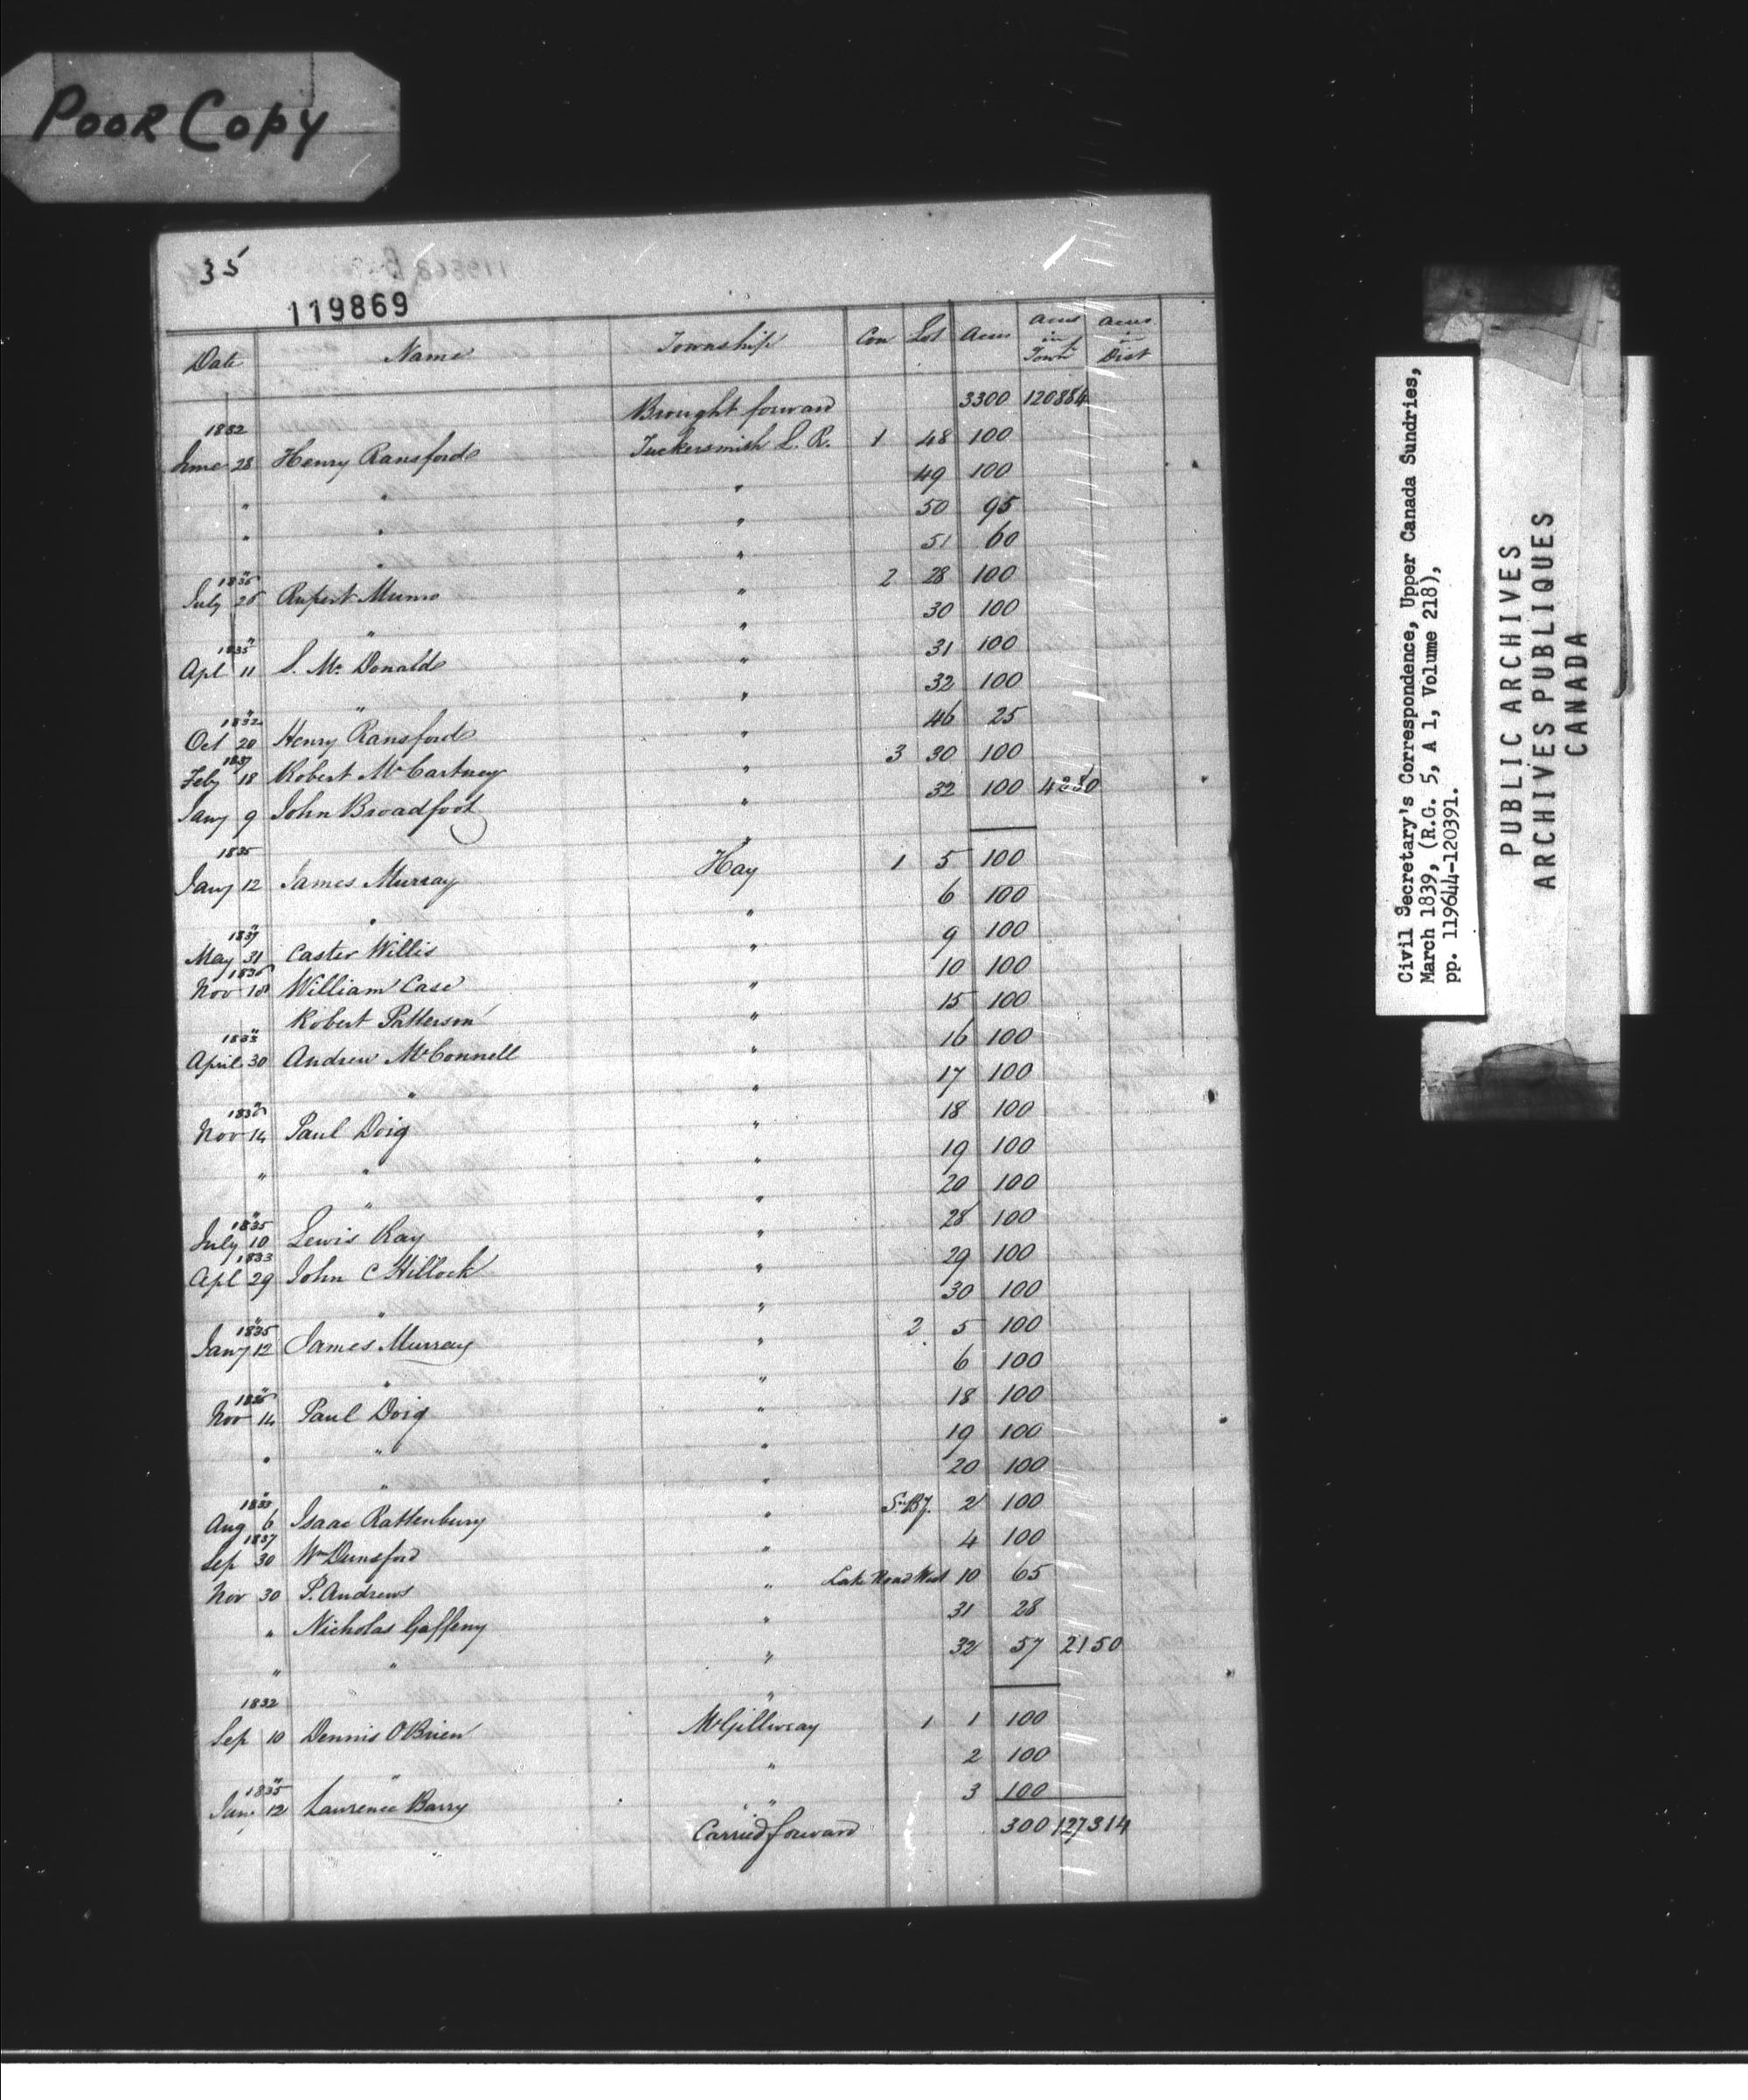 Poor Copy
35
119869
Date Name Township Con Lot Acres Acres in Townp Acres in Dist
Brought forward 3300 120884
1832
June 28 Henry Ransford Tuckersmith L. R. 1 48 100
" " " 49 100
" " " 50 95
" " 51 60
1835
July 25 Rupert Munro " 2 28 100
" " 30 100
1835
Apl 11 S. McDonald " 31 100
" " 32 100
1832
Oct 20 Henry Ransford " 46 25
1837
Feby 18 Robert McCartney " 3 30 100
Jany 9 John Broadfoot " 32 100 4280
1835
Jany 12 James Murray Hay 1 5 100
" " 6 100
1837
May 31 Caster Willis " 9 100
1836
Nov 18 William Case " 10 100
Robert Patterson " 15 100
1833
April 30 Andrew McConnell " 16 100
" " 17 100
1836
Nov 14 Paul Doig " 18 100
" " " 19 100
" " 20 100
1835
July 10 Lewis Ray " 28 100
1833
Apl 29 John C Hillock " 29 100
" " 30 100
1835
Jany 12 James Murray " 2 5 100
" " 6 100
1836
Nov 14 Paul Doig " 18 100
" " " 19 100
" " 20 100
1833
Aug 6 Isaac Rattenbury " 2 100
1837
Sep 30 Wm Dunsford " 4 100
Nov 30 P. Andrews " Lake Road West 10 65
" Nicholas Gaffeny " 31 28
" " " 32 57 2150
1832
Sep 10 Dennis O'Brien McGillivray 1 1 100
" " 2 100
1835
Jany 12 Laurence Barry " 3 100
Carried forward 300 127314
Civil Secretary's Correspondence, Upper Canada Sundries,
March 1839, (R.G. 5, A 1, Volume 218),
pp. 119644-120391.
PUBLIC ARCHIVES
ARCHIVES PUBLIQUES
CANADA